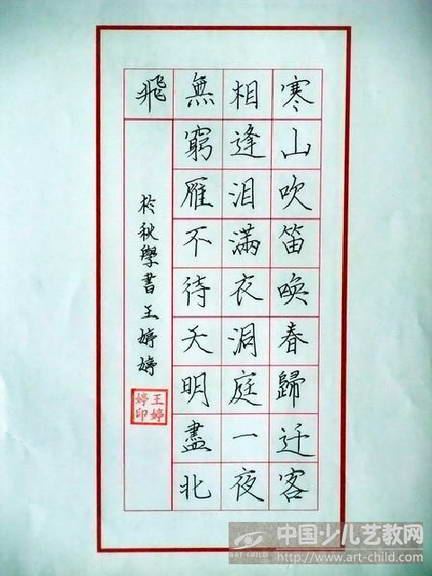 寒山吹笛喚春歸迁客
相逢泪滿衣洞庭一夜
無窮雁不待天明盡北
飛
於秋學書王婷婷
王婷
婷印
ART CHILD
中国少儿艺教网
http://www.art-child.com